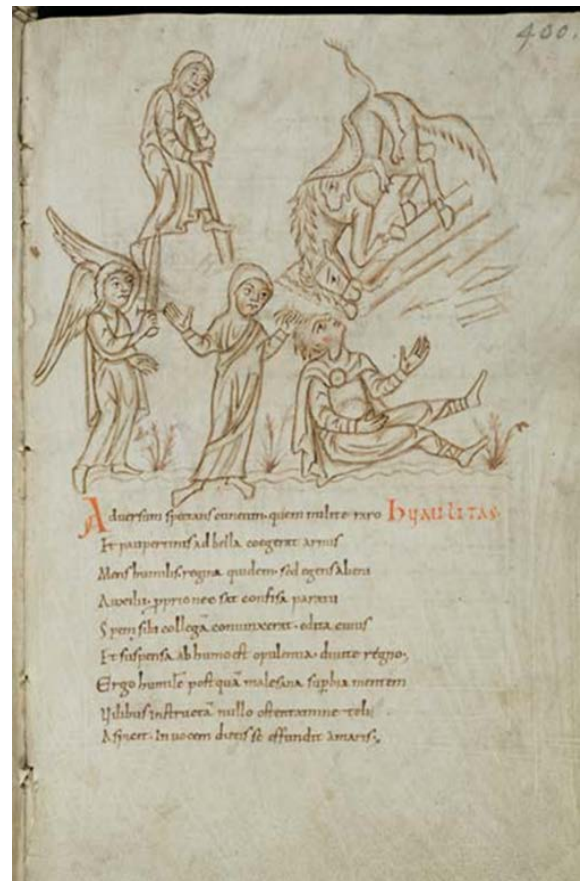 400.
Aduersum sperans cuneum. quem milite raro HUMILITAS.
Et paupertinis ad bella coegerat armis
Mens humilis. regina quidem. sed egens alieni
Auxilii. pprio nec sat confisa paratu
Spem sibi collegā coniunxerat. edita cuius
Et suspensa ab humo est opulentia. diuite regno.
Ergo humilē postquā malesana supbia mentem
Vilibus instructā nullo ostentamine teli
Aspicit. In uocem dictis se effundit amaris.